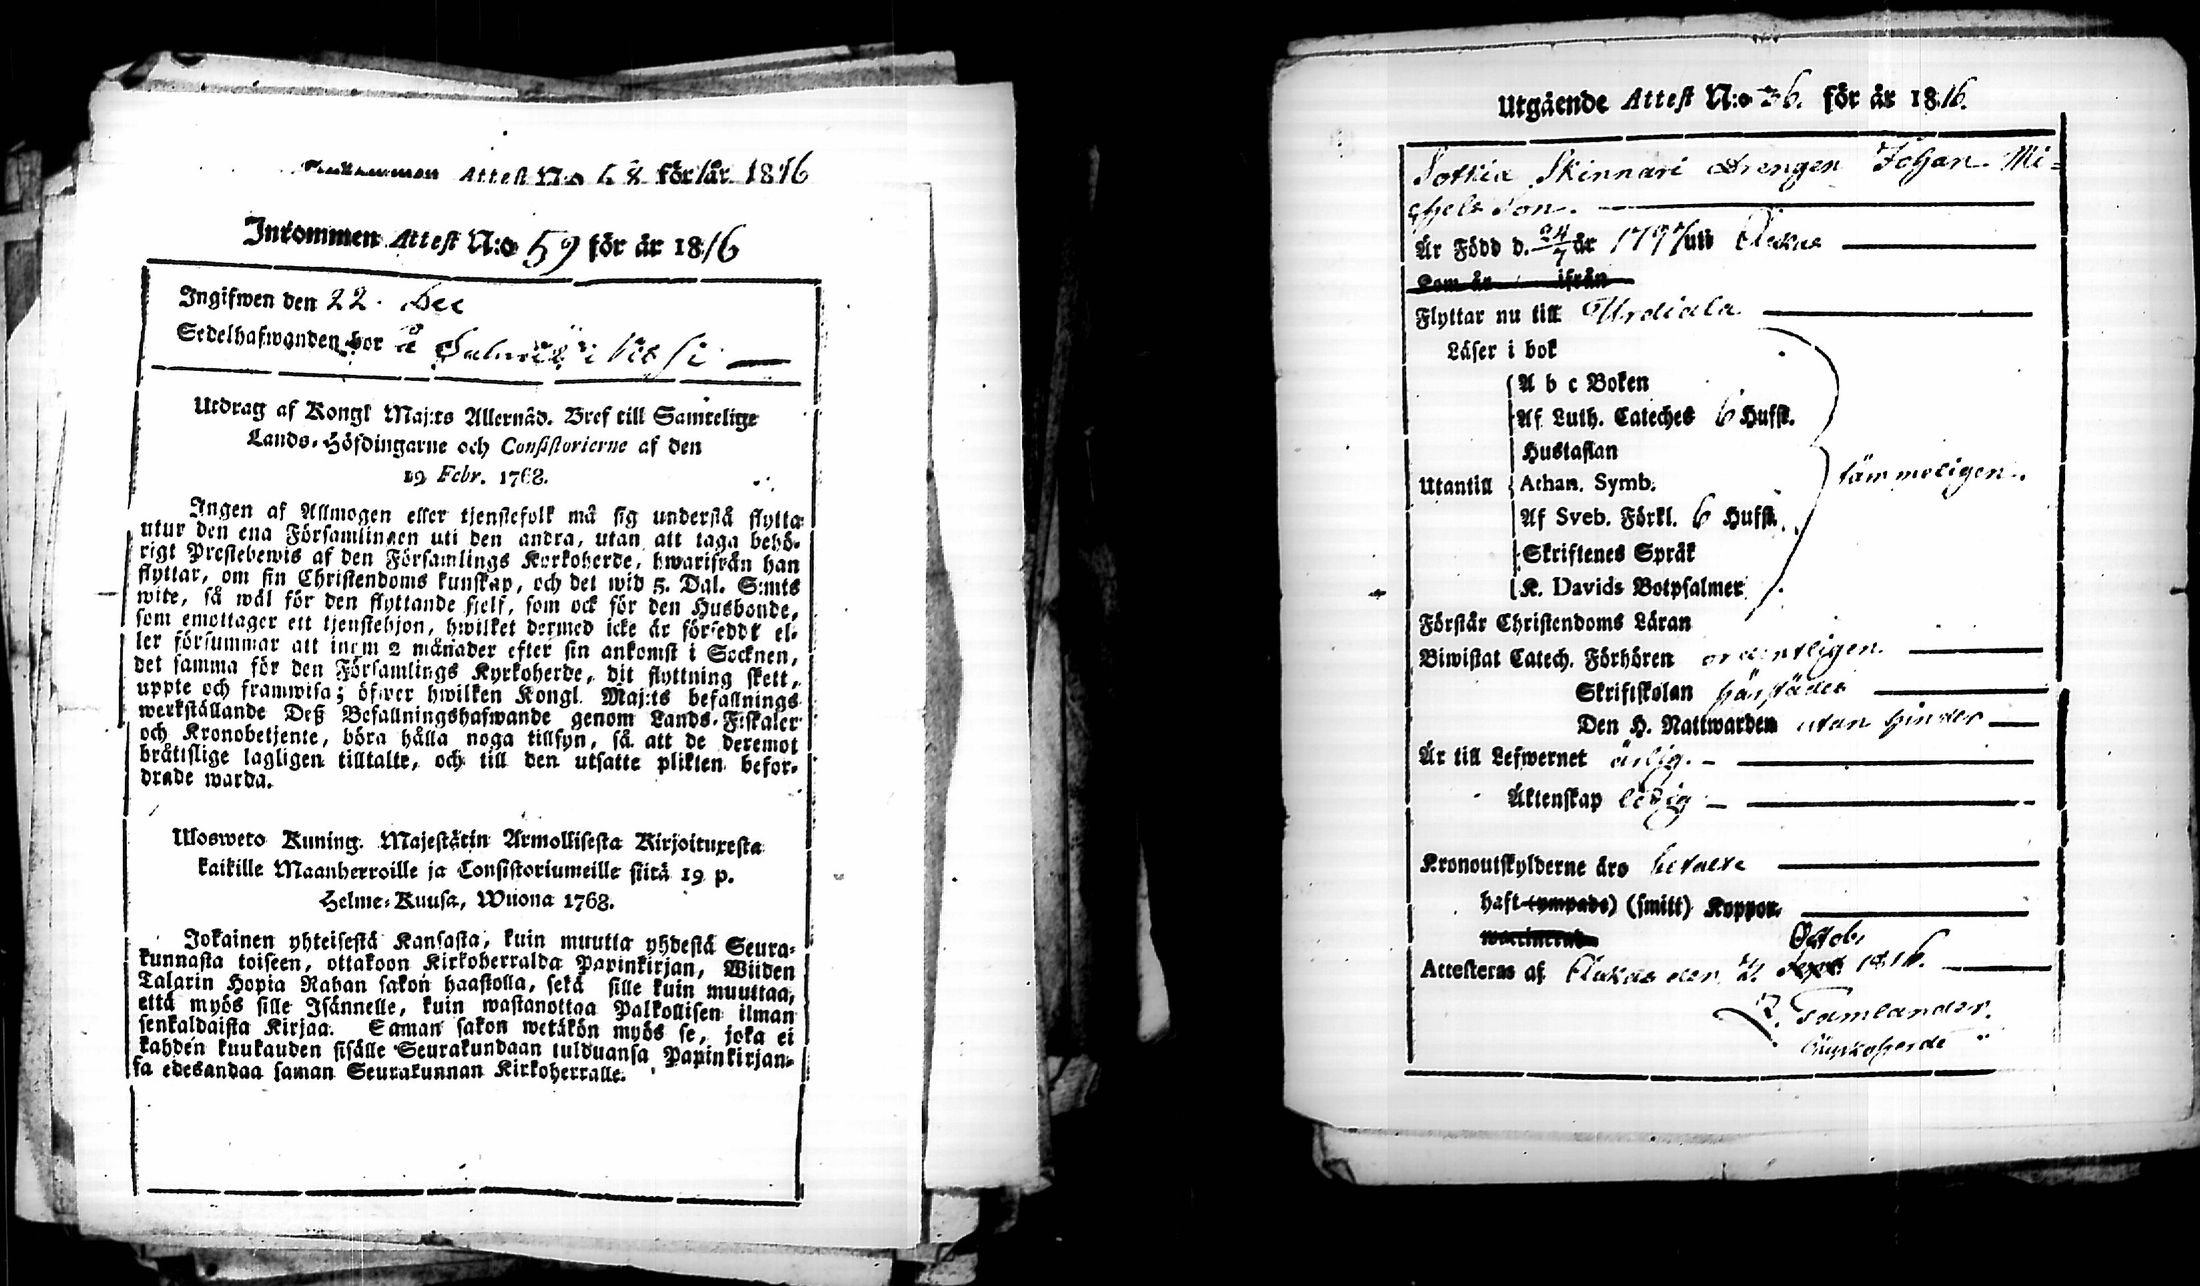 Inkommen Attest N:o 58 för år 1816
Inkommen Attest N:o 59 för år 1816
Ingifwen den 22. Dec
Sedelhafwanden bor å
Utdrag af Kongl Maj:ts Allernåd. Bref till Samtelige
Lands-Höfdingarne och Consistorierne af den
19 Febr. 1768.
Ingen af Allmogen eller tjenstefolk må sig understå flytta
utur den ena Församlingen uti den andra, utan att taga behö-
rigt Prestebewis af den Församlings Kyrkoherde, hwarifrån han
flyttar, om sin Christendoms kunskap, och det wid 5. Dal. S:mts
wite, så wäl för den flyttande sjelf, som ock för den Husbonde,
som emottager ett tjenstehjon, hwilket dermed icke är försedt el-
ler försummar att inom 2 månader efter sin ankomst i Socknen,
det samma för den Församlings Kyrkoherde, dit flyttning skett,
uppte och framwisa; öfwer hwilken Kongl. Maj:ts befallnings
werkställande Deß Befallningshafwande genom Lands-Fiskaler
och Kronobetjente, böra hålla noga tillsyn, så att de deremot
bråtislige lagligen tilltalte, och till den utsatte plikten befor-
drade warda.
Ulosweto Kuning. Majestätin Armollisesta Kirjoituxesta
kaikille Maanherroille ja Consistoriumeille siitä 19 p.
Helme-Kuusa, Wuona 1768.
Jokainen yhteisestä Kansasta, kuin muutta yhdestä Seura-
kunnasta toiseen, ottakoon Kirkoherralda Papinkirjan, Wiiden
Talarin Hopia Rahan sakon haastolla, sekä sille kuin muuttaa,
että myös sille Isännelle, kuin wastanottaa Palkollisen ilman
senkaldaista Kirjaa. Saman sakon wetäkön myös se, joka ei
kahden kuukauden sisälle Seurakundaan tulduansa Papinkirjan-
sa edesandaa saman Seurakunnan Kirkoherralle.
Utgående Attest N:o 36. för år 1816.
Sottia Skinnari Drengen Johan Mi=
chels Son.
Är Född d. 24/7 år 1797 uti Akkas
Som är ifrån
Flyttar nu till Urdiala
Läser i bok
A b c Boken
Af Luth. Cateches 6 Hufst.
Hustaflan
Utantill Athan. Symb.
Af Sveb. Förkl. 6 Hufst.
Skriftenes Språk
K. Davids Botpsalmer
tämmeligen.
Förstår Christendoms Läran
Biwistat Catech. Förhören ordentligen.
Skriftskolan härstädes
Den H. Nattwarden utan hinder
Är till Lefwernet ärlig.
Äktenskap ledig
Kronoutskylderne äro betalte
haft (ympade) (smitt) Koppor.
waccinerad
Octob.
Attesteras af Akkas den 2. Sept 1816.
Tamlander.
Kyrkoherde